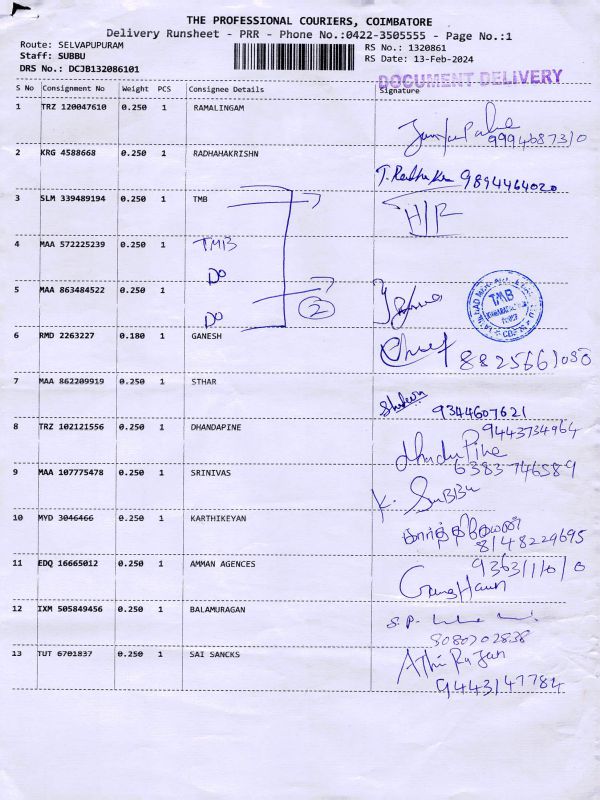 THE PROFESSIONAL COURIERS, COIMBATORE
Delivery Runsheet - PRR - Phone No.:0422-3505555 - Page No.:1
Route: SELVAPUPURAM
Staff: SUBBU
DRS No.: DCJB132086101
RS No.: 1320861
RS Date: 13-Feb-2024
DOCUMENT DELIVERY
S No Consignment No Weight PCS Consignee Details Signature
1 TRZ 120047610 0.250 1 RAMALINGAM
9994687310
2 KRG 4588668 0.250 1 RADHAHAKRISHN
T. Radha 9894464020
3 SLM 339489194 0.250 1 TMB
H/R
4 MAA 572225239 0.250 1 TMB
DO
5 MAA 863484522 0.250 1
DO
2
TMB
6 RMD 2263227 0.180 1 GANESH
8825661080
7 MAA 862209919 0.250 1 STHAR
9344607621
8 TRZ 102121556 0.250 1 DHANDAPINE
9443734964
6383746589
9 MAA 107775478 0.250 1 SRINIVAS
K. SUBBU
10 MYD 3046466 0.250 1 KARTHIKEYAN
8148229695
11 EDQ 16665012 0.250 1 AMMAN AGENCES
9363111010
12 IXM 505849456 0.250 1 BALAMURAGAN
S.P.
8080202838
13 TUT 6701837 0.250 1 SAI SANCKS
Athi Rajan
9443147784